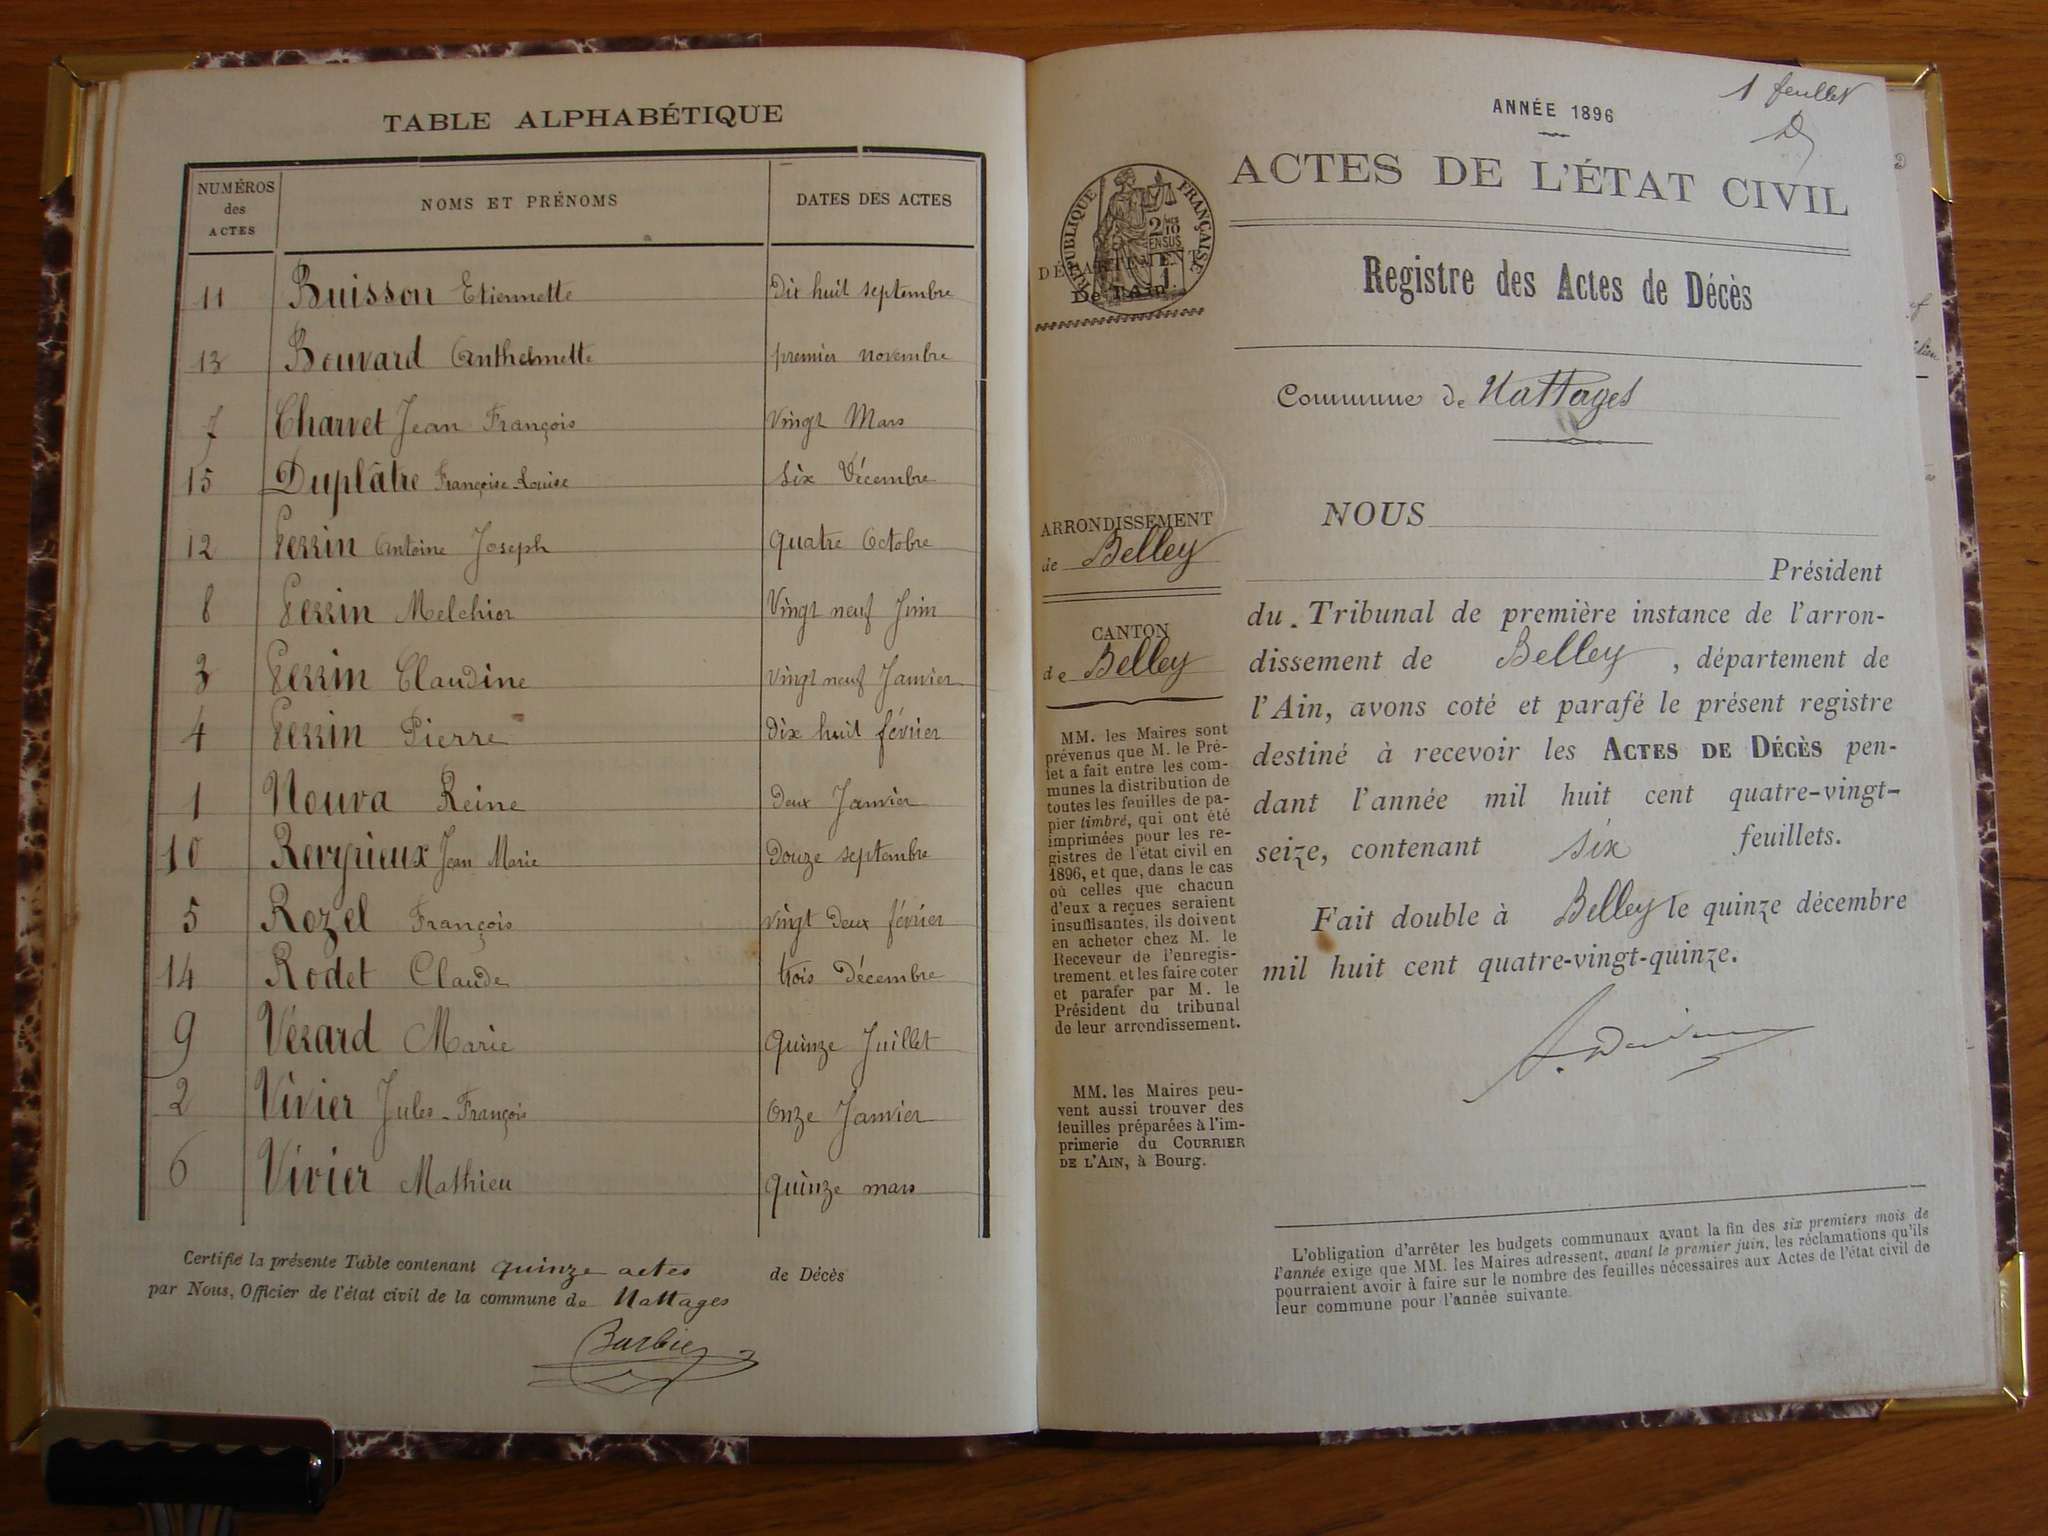 TABLE ALPHABÉTIQUE
NUMÉROS des ACTES NOMS ET PRÉNOMS DATES DES ACTES
11 Buisson Etiennette Dix huit septembre
13 Bouvard Anthelmette premier novembre
7 Charvet Jean François Vingt Mars
15 Duplâtre Françoise Louise Six Décembre
12 Perrin Antoine Joseph Quatre Octobre
8 Perrin Melchior Vingt neuf Juin
3 Perrin Claudine Vingt neuf Janvier
4 Perrin Pierre Dix huit février
1 Reine Deux Janvier
10 Revyrieux Jean Marie Douze septembre
5 Rozel François Vingt Deux février
14 Rodet Claude trois Décembre
9 Vérard Marie Quinze Juillet
2 Vivier Jules-François Onze Janvier
6 Vivier Mathieu Quinze mars
Certifié la présente Table contenant quinze actes de Décès
par Nous, Officier de l'état civil de la commune de Nattages
Barbier
1 feuillet
ANNÉE 1896
ACTES DE L'ÉTAT CIVIL
RÉPUBLIQUE FRANÇAISE
2/10 EN SUS
DÉPARTEMENT
De l'Ain
Registre des Actes de Décès
Commune de Nattages
ARRONDISSEMENT
de Belley
CANTON
de Belley
MM. les Maires sont
prévenus que M. le Pré-
fet a fait entre les com-
munes la distribution de
toutes les feuilles de pa-
pier timbré, qui ont été
imprimées pour les re-
gistres de l'état civil en
1896, et que, dans le cas
où celles que chacun
d'eux a reçues seraient
insuffisantes, ils doivent
en acheter chez M. le
Receveur de l'enregis-
trement et les faire coter
et parafer par M. le
Président du tribunal
de leur arrondissement.
MM. les Maires peu-
vent aussi trouver des
feuilles préparées à l'im-
primerie du COURRIER
DE L'AIN, à Bourg.
NOUS
Président
du Tribunal de première instance de l'arron-
dissement de Belley, département de
l'Ain, avons coté et parafé le présent registre
destiné à recevoir les ACTES DE DÉCÈS pen-
dant l'année mil huit cent quatre-vingt-
seize, contenant six feuillets.
Fait double à Belley le quinze décembre
mil huit cent quatre-vingt-quinze.
L'obligation d'arrêter les budgets communaux avant la fin des six premiers mois de
l'année exige que MM. les Maires adressent, avant le premier juin, les réclamations qu'ils
pourraient avoir à faire sur le nombre des feuilles nécessaires aux Actes de l'état civil de
leur commune pour l'année suivante.